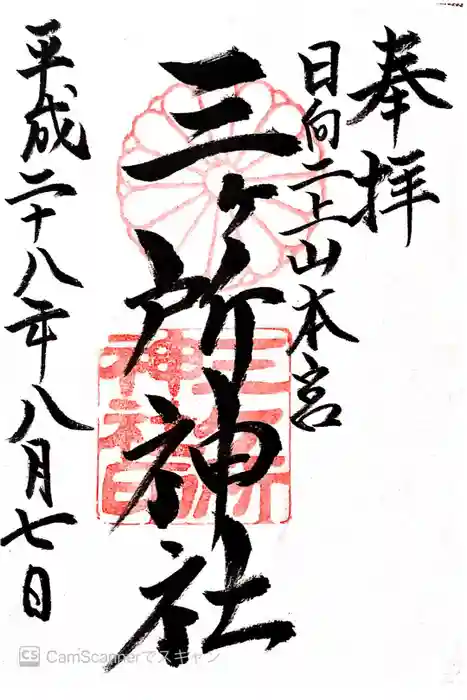 奉拝
日向二上山本宮
三ヶ所神社
平成二十八年八月七日
三ヶ所
神社印
CS CamScannerでスキャン